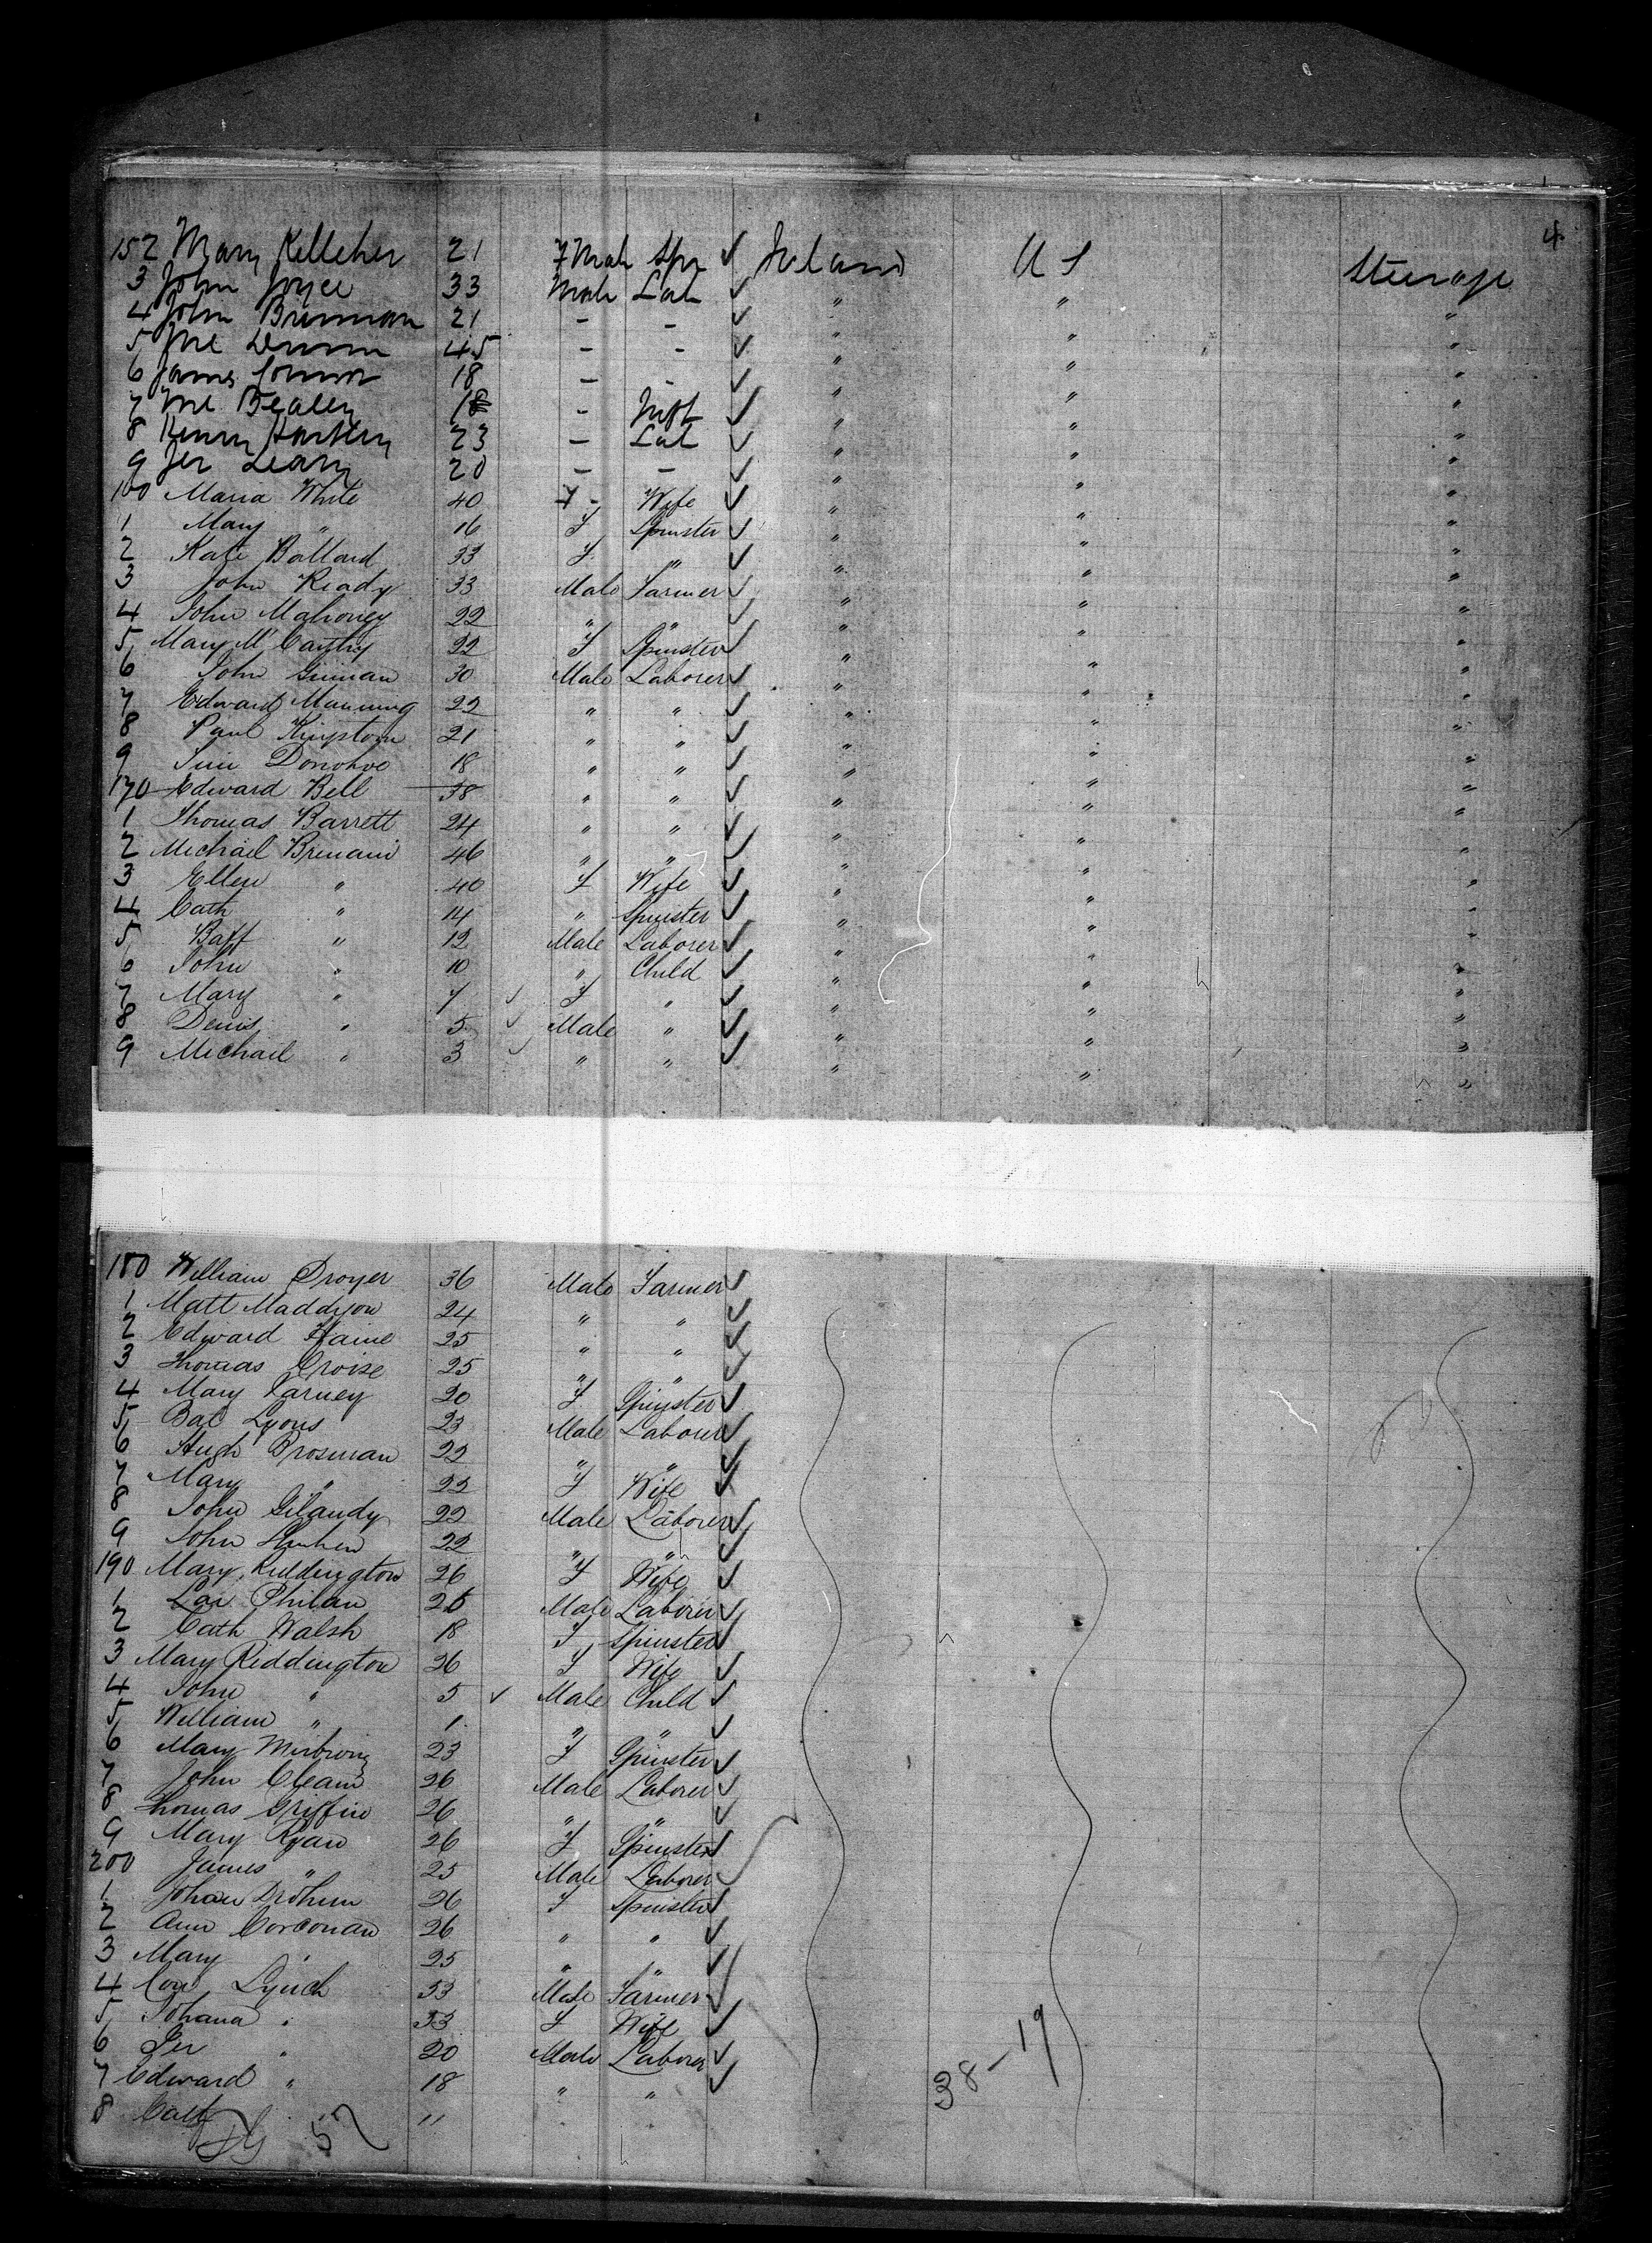 4
152 Mary Kelleher 21 Female Spr ✓ Ireland U S Steerage
3 John Joyce 33 Male Lab ✓ " " "
4 John Brennan 21 - - ✓ " " "
5 45 - - ✓ " " "
6 James Connor 18 - - ✓ " " "
7 18 - ✓ " " "
8 23 - Lab ✓ " " "
9 Jer Leary 20 - - ✓ " " "
160 Maria White 40 F - Wife ✓ " " "
1 Mary " 16 F Spinster ✓ " " "
2 Kate Ballard 33 F " ✓ " " "
3 John Ready 33 Male Farmer ✓ " " "
4 John Mahoney 22 " " ✓ " " "
5 Mary McCarthy 22 F Spinster ✓ " " "
6 John 30 Male Laborer ✓ " " "
7 Edward Manning 22 " " ✓ " " "
8 Paul Kingston 21 " " ✓ " " "
9 Donohoe 18 " " ✓ " " "
170 Edward Bell 38 " " ✓ " " "
1 Thomas Barrett 24 " " ✓ " " "
2 Michael 46 " " ✓ " " "
3 Ellen " 40 F Wife ✓ " " "
4 Cath " 14 " Spinster ✓ " " "
5 " 12 Male Laborer ✓ " " "
6 John " 10 " Child ✓ " " "
7 Mary " 7 ✓ F " ✓ " " "
8 Denis " 5 ✓ Male " ✓ " " "
9 Michael " 3 ✓ " " ✓ " " "
180 William 36 Male Farmer ✓
1 Matt 24 " " ✓
2 Edward 25 " " ✓
3 Thomas Croise 25 " " ✓
4 Mary 20 F Spinster ✓
5 Bat Lyons 23 Male Labourer ✓
6 Hugh Brosman 22 " " ✓
7 Mary " 22 F Wife ✓
8 John Gilandy 22 Male Laborer ✓
9 John 22 " " ✓
190 Mary Reddington 26 F Wife ✓
1 Philan 25 Male Laborer ✓
2 Cath Walsh 18 F Spinster ✓
3 Mary Reddington 26 F Wife ✓
4 John " 5 ✓ Male Child ✓
5 William " 1 " " ✓
6 Mary 23 F Spinster ✓
7 John 26 Male Laborer ✓
8 Thomas Griffin 26 " " ✓
9 Mary Ryan 26 F Spinster ✓
200 James " 25 Male Laborer ✓
1 26 F Spinster ✓
2 Ann Corcoran 26 " " ✓
3 Mary " 25 " " ✓
4 Lynch 53 Male Farmer ✓
5 Johana " 53 F Wife ✓
6 Jer " 20 Male Laborer ✓
7 Edward " 18 " " ✓
8 Cath " 11 " "
57
38-19